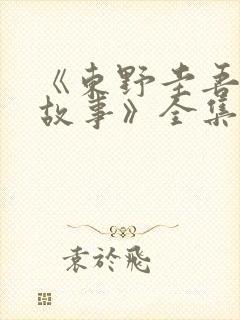 《東野圭吾
故事》全集
袁於飛